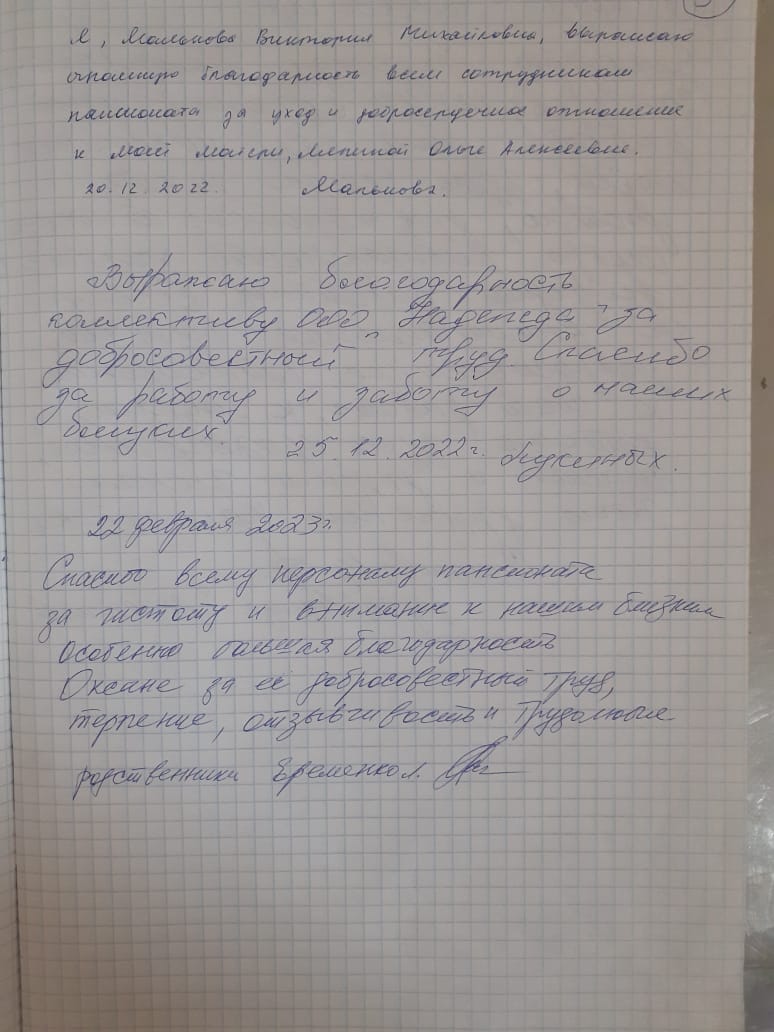 Я, Малькова Виктория Михайловна, выражаю
огромную благодарность всем сотрудникам
пансионата за уход и добросердечное отношение
к моей матери, Ольге Алексеевне.
20.12.2022. Малькова.
Выражаю благодарность
коллективу ООО "Надежда" за
добросовестный труд. Спасибо
за работу и заботу о наших
близких.
25.12.2022г.
22 февраля 2023г.
Спасибо всему персоналу пансионата
за чистоту и внимание к нашим близким
Особенно большая благодарность
Оксане за её добросовестный труд,
терпение, отзывчивость и трудолюбие
родственники Еременко Л.